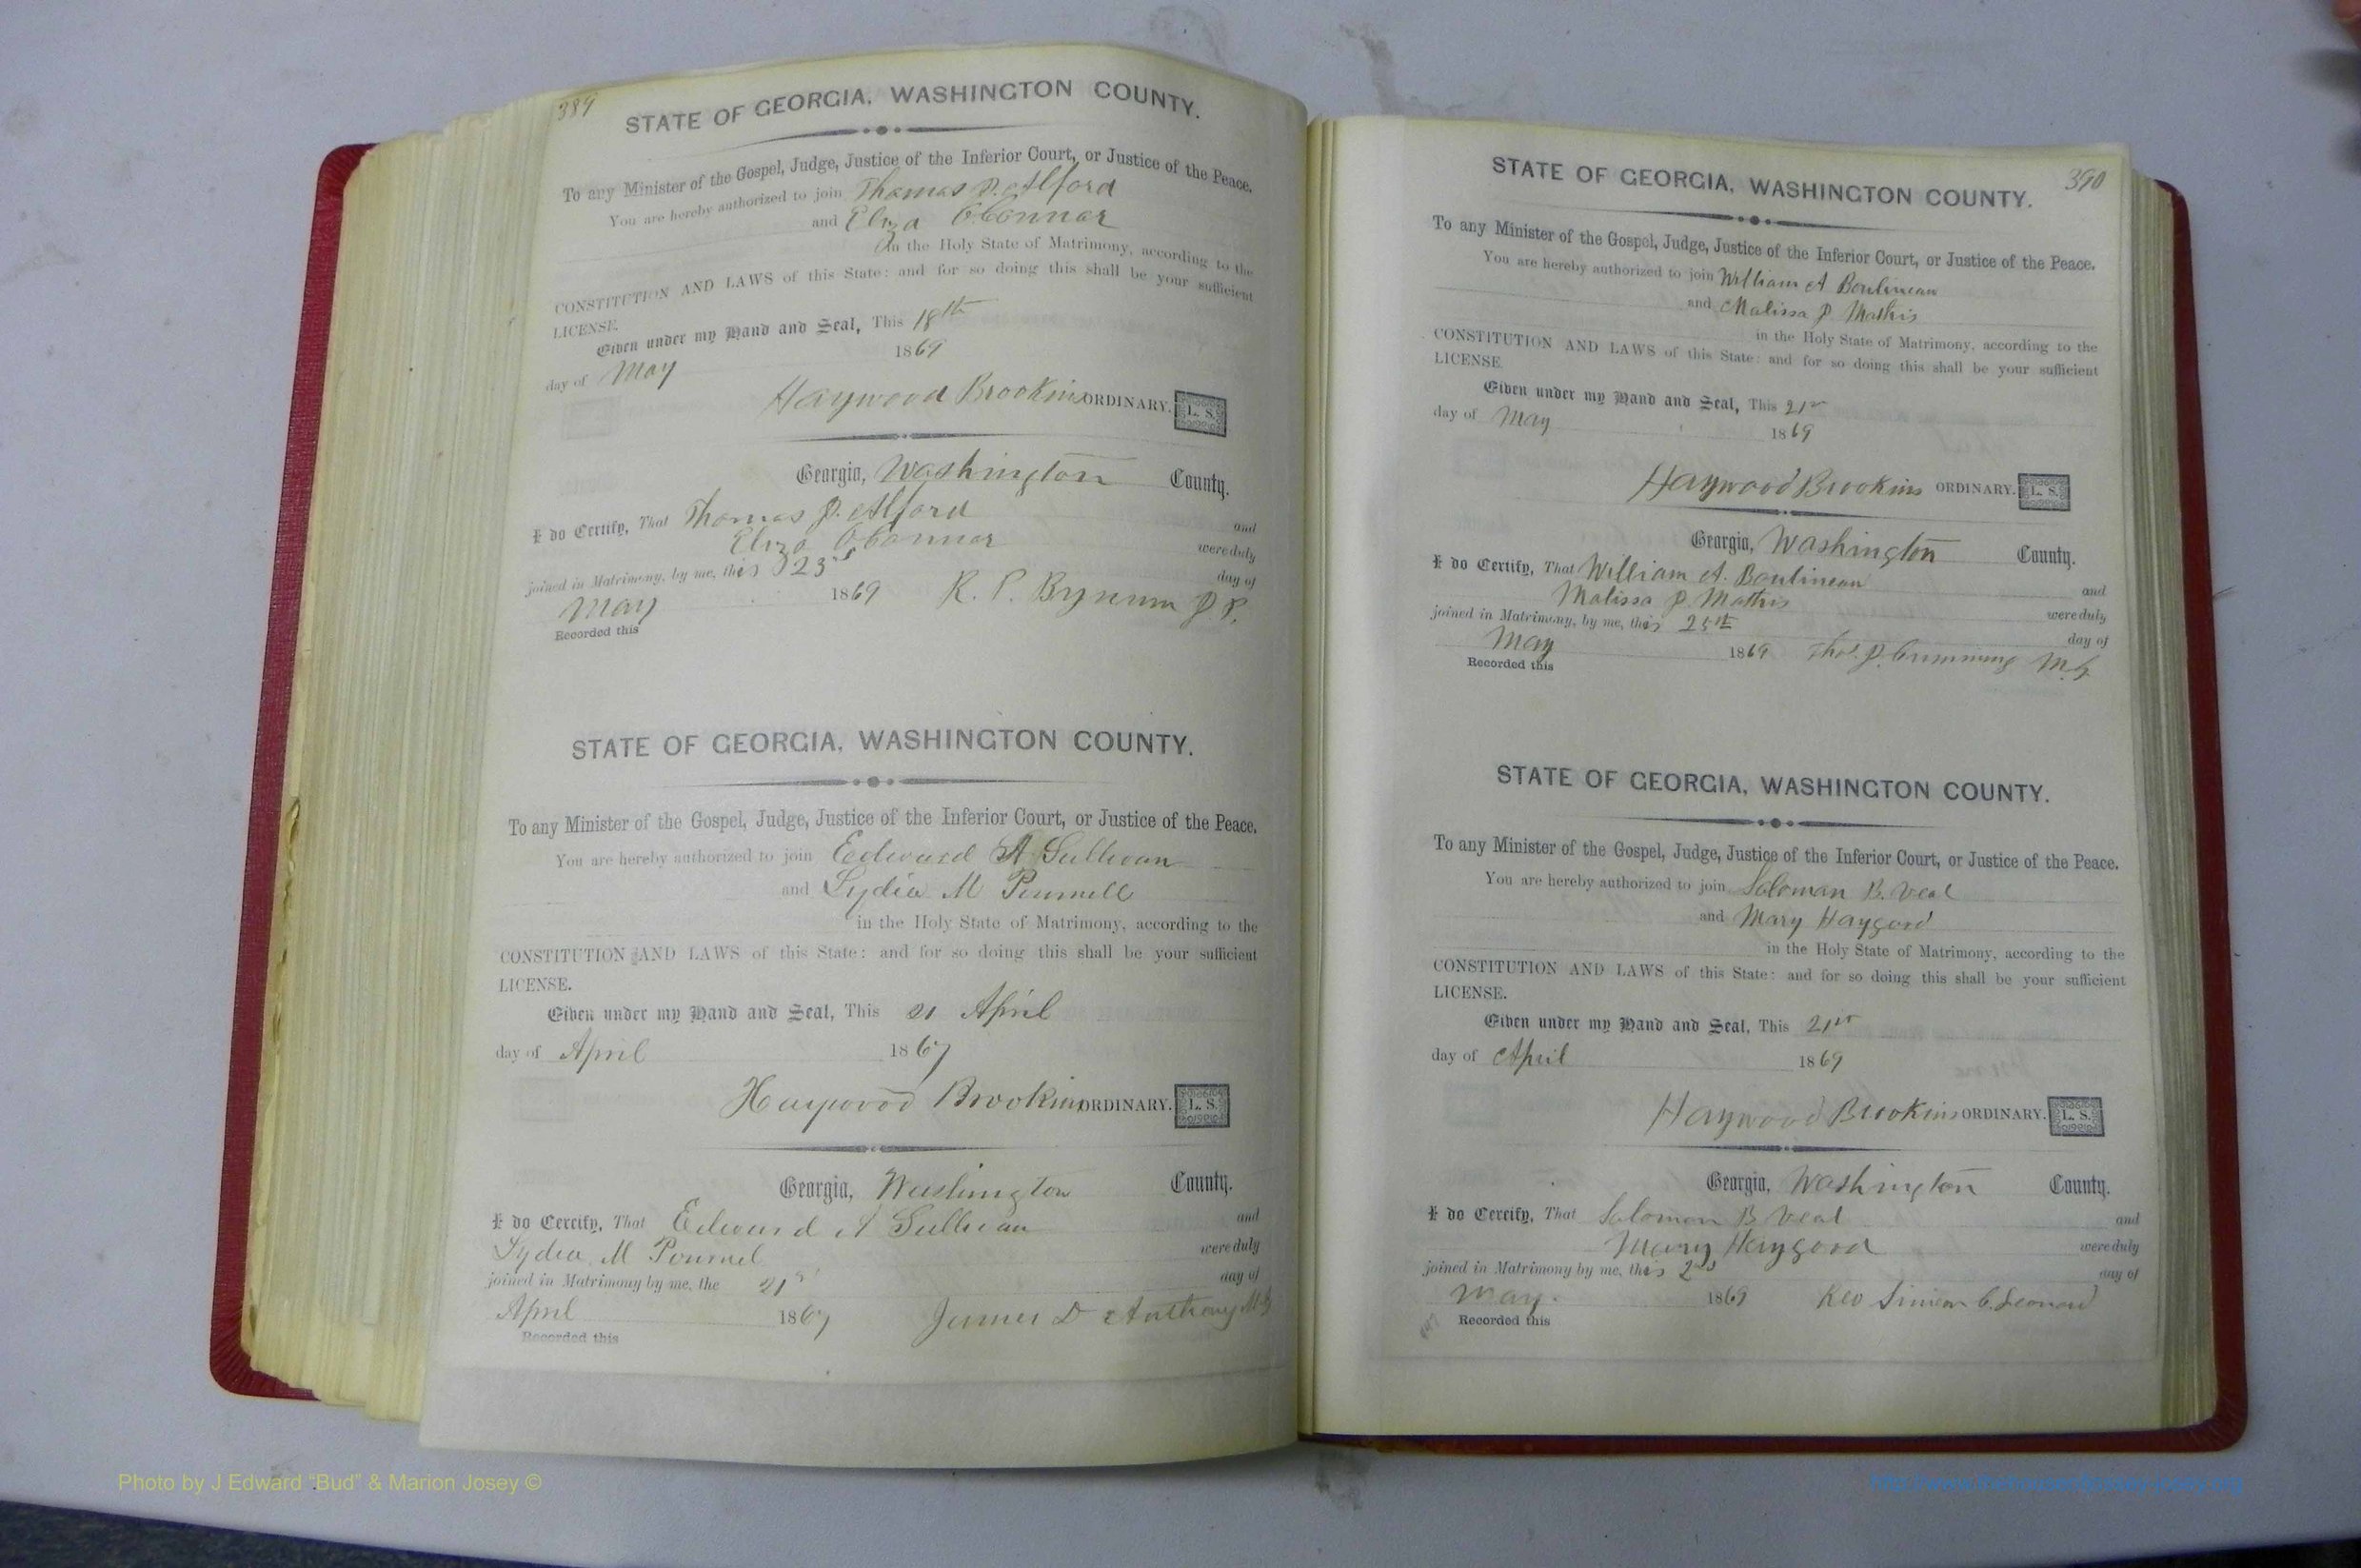 389
STATE OF GEORGIA, WASHINGTON COUNTY.
To any Minister of the Gospel, Judge, Justice of the Inferior Court, or Justice of the Peace.
You are hereby authorized to join Thomas P. Alford
and Eliza O'Connor
In the Holy State of Matrimony, according to the
CONSTITUTION AND LAWS of this State: and for so doing this shall be your sufficient
LICENSE.
Given under my Hand and Seal, This 18th
day of May 1869
Haywood Brookins ORDINARY. L. S.
Georgia, Washington County.
I do Certify, That Thomas P. Alford and
Eliza O'Connor were duly
joined in Matrimony, by me, this 23 day of
May 1869 R. P. Bynum J. P.
Recorded this
STATE OF GEORGIA, WASHINGTON COUNTY.
To any Minister of the Gospel, Judge, Justice of the Inferior Court, or Justice of the Peace.
You are hereby authorized to join Edward A Sullivan
and Lydia M Pournell
in the Holy State of Matrimony, according to the
CONSTITUTION AND LAWS of this State: and for so doing this shall be your sufficient
LICENSE.
Given under my Hand and Seal, This 21 April
day of April 1869
Haywood Brookins ORDINARY. L. S.
Georgia, Washington County.
I do Cercify, That Edward A Sullivan and
Lydia M Pournel were duly
joined in Matrimony by me, the 21st day of
April 1869 James D Anthony M G
Recorded this
390
STATE OF GEORGIA, WASHINGTON COUNTY.
To any Minister of the Gospel, Judge, Justice of the Inferior Court, or Justice of the Peace.
You are hereby authorized to join William A Boulineau
and Malissa P Mathis
in the Holy State of Matrimony, according to the
CONSTITUTION AND LAWS of this State: and for so doing this shall be your sufficient
LICENSE.
Given under my Hand and Seal, This 21st
day of May 1869
Haywood Brookins ORDINARY. L. S.
Georgia, Washington County.
I do Certify, That William A. Boulineau and
Malissa P. Mathis were duly
joined in Matrimony, by me, this 25th day of
May 1869 Thos. J. Cumming M.G.
Recorded this
STATE OF GEORGIA, WASHINGTON COUNTY.
To any Minister of the Gospel, Judge, Justice of the Inferior Court, or Justice of the Peace.
You are hereby authorized to join Soloman B. Veal
and Mary Haygood
in the Holy State of Matrimony, according to the
CONSTITUTION AND LAWS of this State: and for so doing this shall be your sufficient
LICENSE.
Given under my Hand and Seal, This 21st
day of April 1869
Haywood Brookins ORDINARY. L. S.
Georgia, Washington County.
I do Cercify, That Soloman B Veal and
Mary Haygood were duly
joined in Matrimony by me, this 2nd day of
May. 1869 Rev Simeon C. Leonard
Recorded this
Photo by J Edward "Bud" & Marion Josey ©